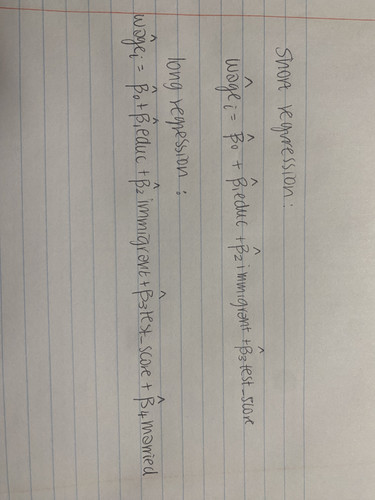 short regression:
ŵage_i = β̂₀ + β̂₁educ + β̂₂immigrant + β̂₃test_score
long regression:
ŵage_i = β̂₀ + β̂₁educ + β̂₂immigrant + β̂₃test_score + β̂₄married